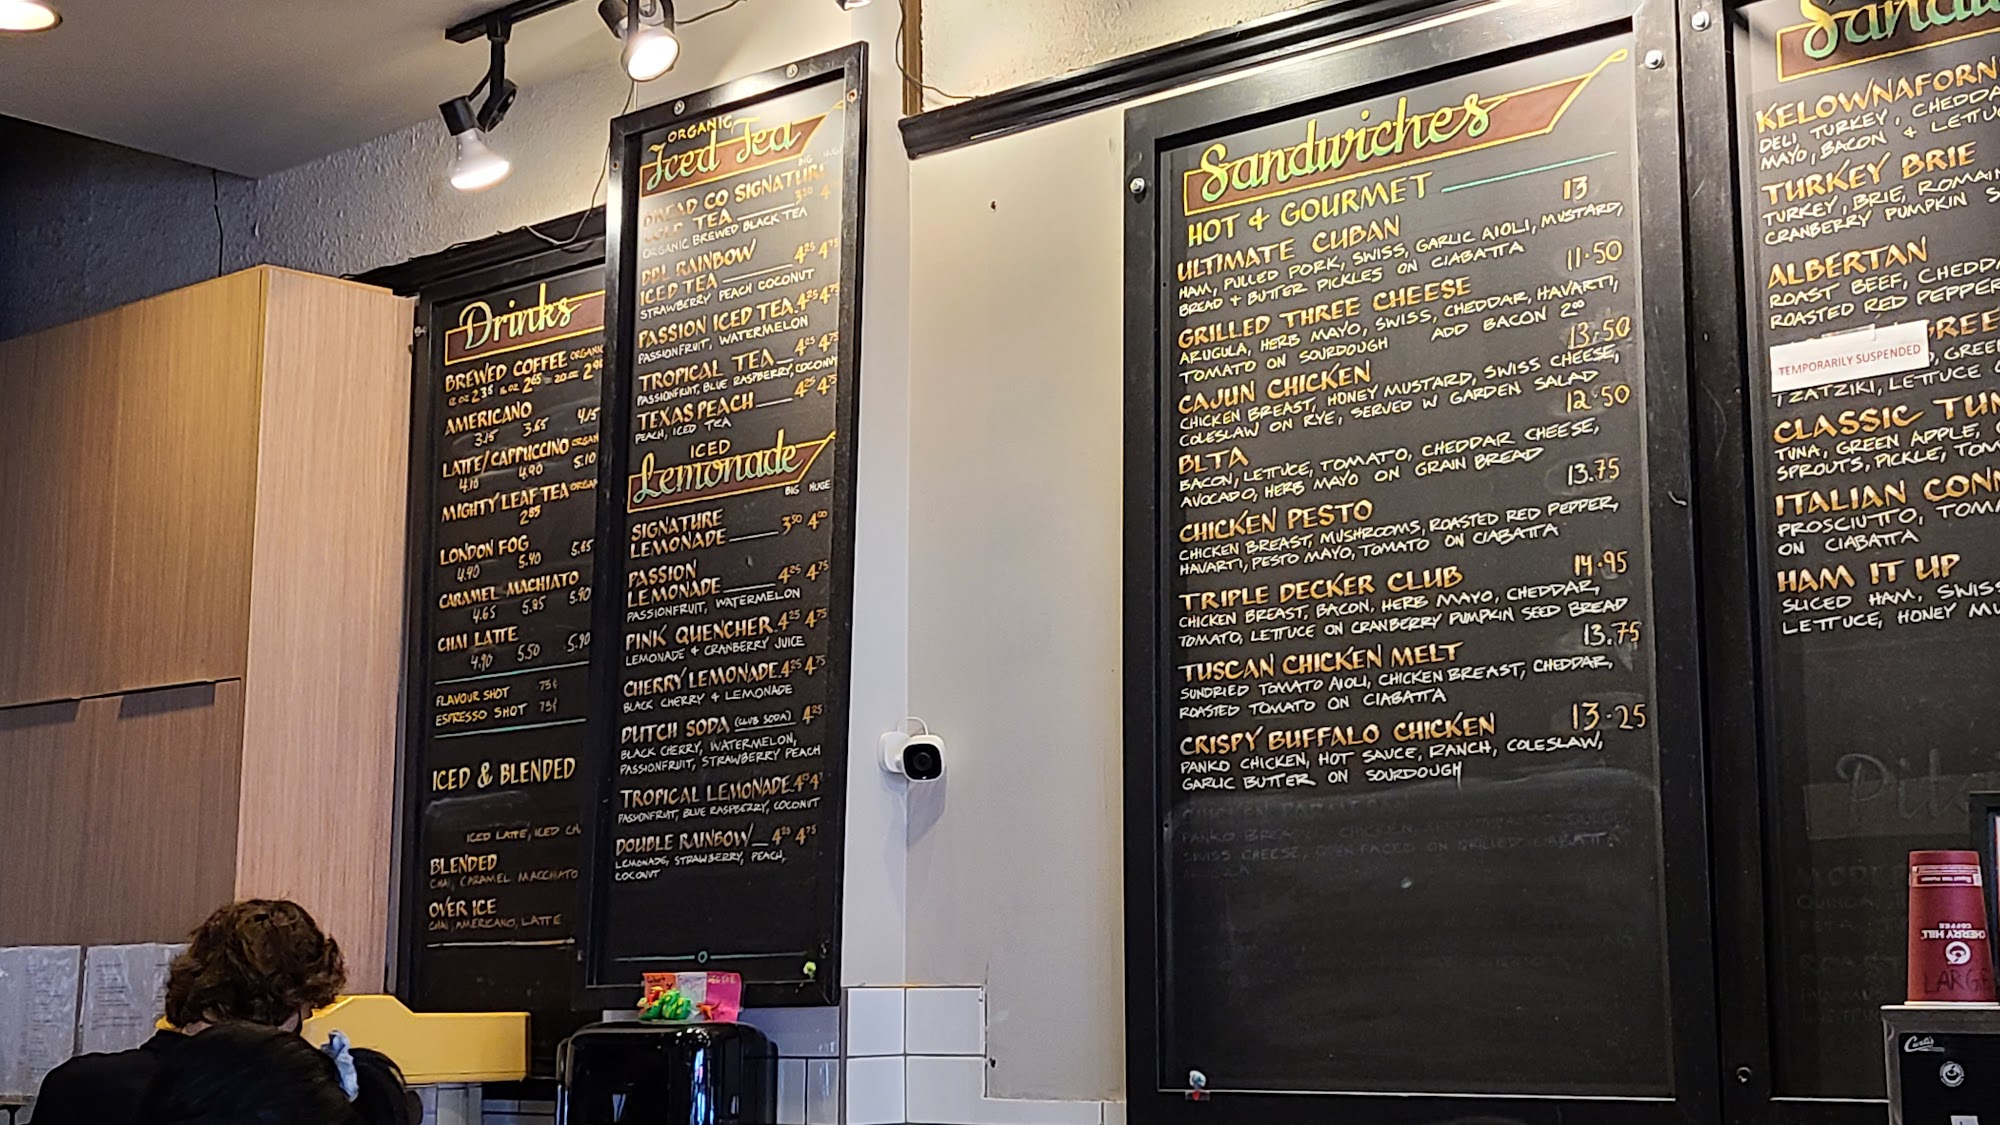 Drinks
BREWED COFFEE ORGANIC
12 OZ 2.35 16 OZ 2.65 20 OZ
AMERICANO
3.15 3.65 4.15
LATTE/CAPPUCCINO
4.10 4.90 5.10
MIGHTY LEAF TEA
2.85
LONDON FOG
4.90 5.40 5.65
CARAMEL MACHIATO
4.65 5.85 5.90
CHAI LATTE
4.90 5.50 5.90
FLAVOUR SHOT 75¢
ESPRESSO SHOT 75¢
ICED & BLENDED
ICED LATTE, ICED
BLENDED
CHAI, CARAMEL MACCHIATO
OVER ICE
CHAI, AMERICANO, LATTE
ORGANIC
Iced Tea
BIG HUGE
BREAD CO SIGNATURE
COLD TEA 3.50 4
ORGANIC BREWED BLACK TEA
DBL RAINBOW
ICED TEA 4.25 4.75
STRAWBERRY PEACH COCONUT
PASSION ICED TEA 4.25 4.75
PASSIONFRUIT, WATERMELON
TROPICAL TEA 4.25 4.75
PASSIONFRUIT, BLUE RASPBERRY, COCONUT
TEXAS PEACH 4.25 4.75
PEACH, ICED TEA
ICED
Lemonade
BIG HUGE
SIGNATURE
LEMONADE 3.50 4.00
PASSION
LEMONADE 4.25 4.75
PASSIONFRUIT, WATERMELON
PINK QUENCHER 4.25 4.75
LEMONADE & CRANBERRY JUICE
CHERRY LEMONADE 4.25 4.75
BLACK CHERRY & LEMONADE
DUTCH SODA (CLUB SODA) 4.25
BLACK CHERRY, WATERMELON,
PASSIONFRUIT, STRAWBERRY PEACH
TROPICAL LEMONADE
PASSIONFRUIT, BLUE RASPBERRY, COCONUT
DOUBLE RAINBOW 4.25 4.75
LEMONADE, STRAWBERRY, PEACH,
COCONUT
Sandwiches
HOT & GOURMET
ULTIMATE CUBAN 13
HAM, PULLED PORK, SWISS, GARLIC AIOLI, MUSTARD,
BREAD & BUTTER PICKLES ON CIABATTA
GRILLED THREE CHEESE 11.50
ARUGULA, HERB MAYO, SWISS, CHEDDAR, HAVARTI,
TOMATO ON SOURDOUGH ADD BACON 2.00
CAJUN CHICKEN 13.50
CHICKEN BREAST, HONEY MUSTARD, SWISS CHEESE,
COLESLAW ON RYE, SERVED W GARDEN SALAD
BLTA 12.50
BACON, LETTUCE, TOMATO, CHEDDAR CHEESE,
AVOCADO, HERB MAYO ON GRAIN BREAD
CHICKEN PESTO 13.75
CHICKEN BREAST, MUSHROOMS, ROASTED RED PEPPER,
HAVARTI, PESTO MAYO, TOMATO ON CIABATTA
TRIPLE DECKER CLUB 14.95
CHICKEN BREAST, BACON, HERB MAYO, CHEDDAR,
TOMATO, LETTUCE ON CRANBERRY PUMPKIN SEED BREAD
TUSCAN CHICKEN MELT 13.75
SUNDRIED TOMATO AIOLI, CHICKEN BREAST, CHEDDAR,
ROASTED TOMATO ON CIABATTA
CRISPY BUFFALO CHICKEN 13.25
PANKO CHICKEN, HOT SAUCE, RANCH, COLESLAW,
GARLIC BUTTER ON SOURDOUGH
KELOWNAFORN
DELI TURKEY, CHEDDA
MAYO, BACON & LETTUC
TURKEY BRIE
TURKEY, BRIE, ROMAIN
CRANBERRY PUMPKIN S
ALBERTAN
ROAST BEEF, CHEDD
ROASTED RED PEPPER
TEMPORARILY SUSPENDED
TZATZIKI, LETTUCE
CLASSIC TUN
TUNA, GREEN APPLE,
SPROUTS, PICKLE, TOM
ITALIAN CONN
PROSCIUTTO, TOMA
ON CIABATTA
HAM IT UP
SLICED HAM, SWISS
LETTUCE, HONEY MU
CHERRY HILL
COFFEE
LARGE
Curtis